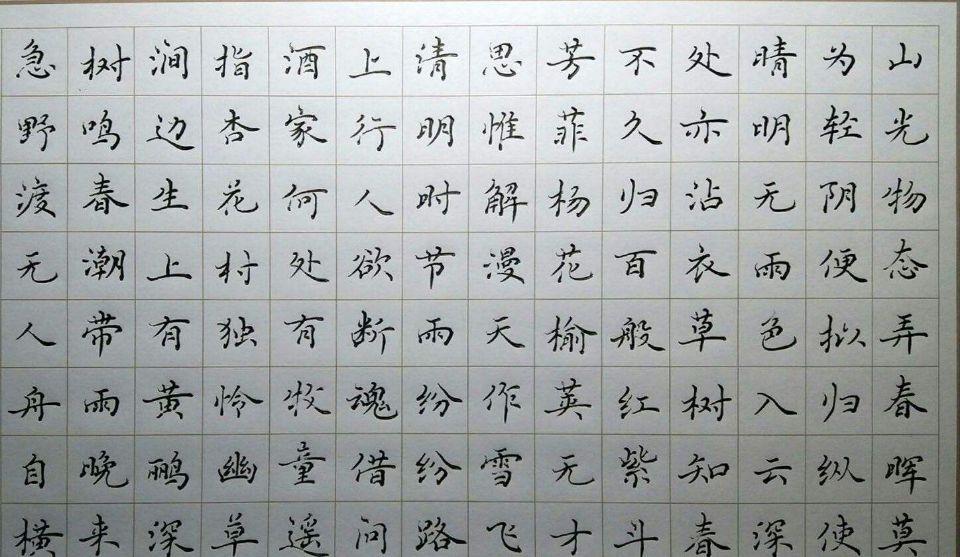 山光物态弄春晖莫
为轻阴便拟归纵使
晴明无雨色入云深
处亦沾衣草树知春
不久归百般红紫斗
芳菲杨花榆荚无才
思惟解漫天作雪飞
清明时节雨纷纷路
上行人欲断魂借问
酒家何处有牧童遥
指杏花村独怜幽草
涧边生上有黄鹂深
树鸣春潮带雨晚来
急野渡无人舟自横